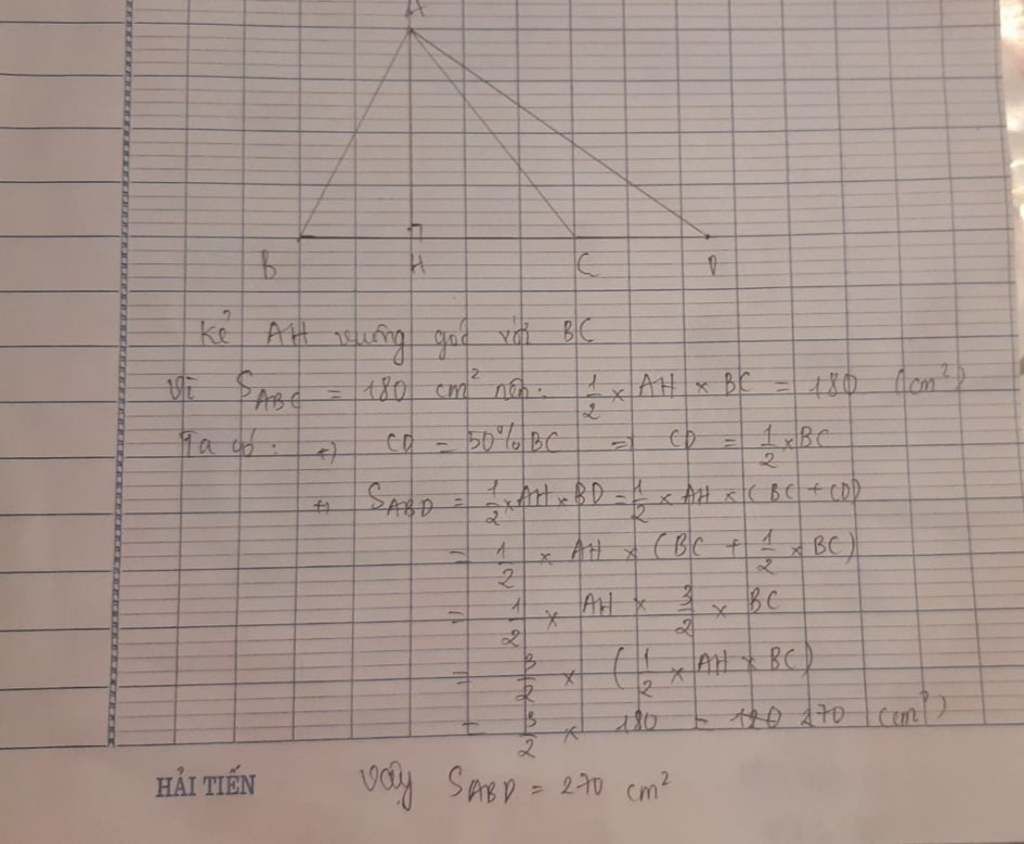 A
B H C D
Kẻ AH vuông góc với BC
Vì S_ABC = 180 cm² nên: 1/2 × AH × BC = 180 (cm²)
Ta có: +) CD = 50% BC => CD = 1/2 × BC
+) S_ABD = 1/2 × AH × BD = 1/2 × AH × (BC + CD)
= 1/2 × AH × (BC + 1/2 × BC)
= 1/2 × AH × 3/2 × BC
= 3/2 × (1/2 × AH × BC)
= 3/2 × 180 = 270 (cm²)
HẢI TIẾN Vậy S_ABD = 270 cm²